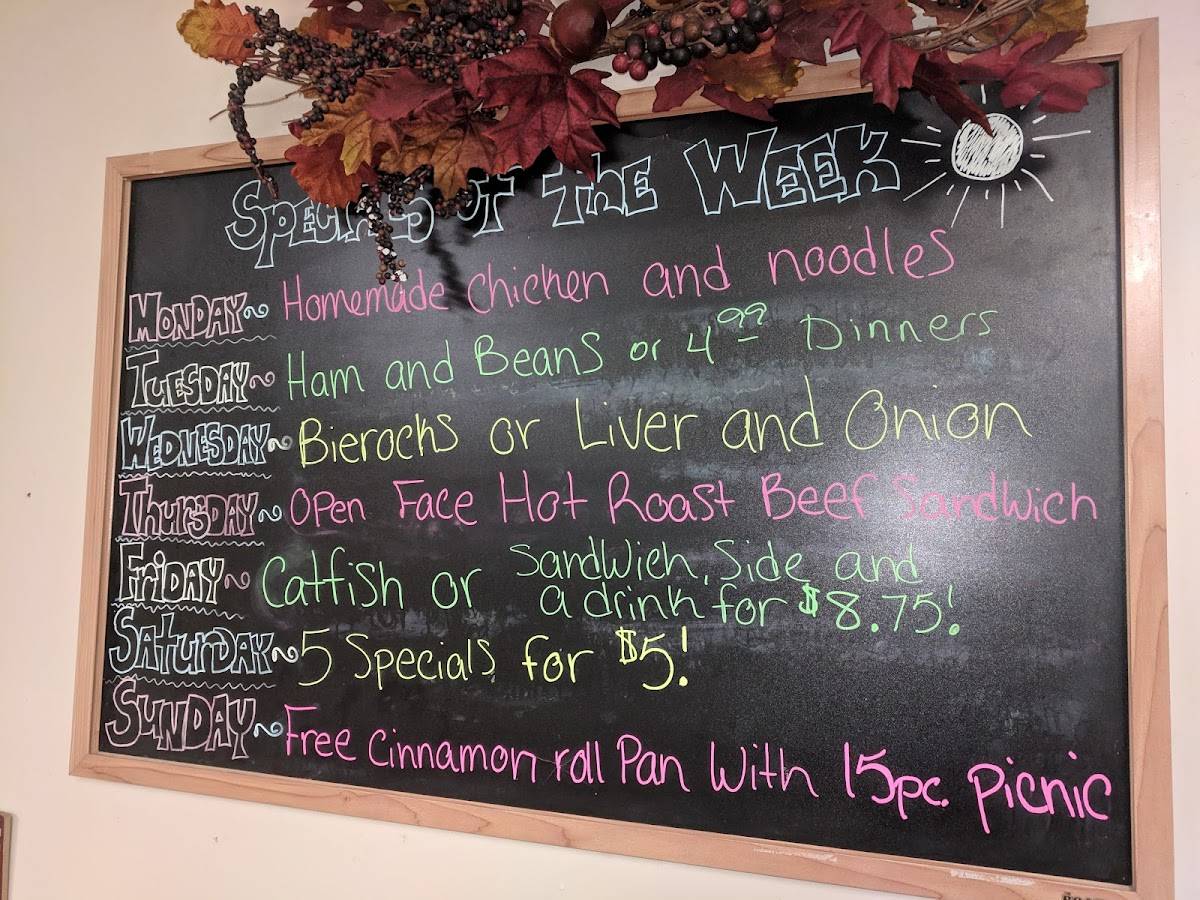 Specials of the Week
Monday~ Homemade chicken and noodles
Tuesday~ Ham and Beans or 4 99 Dinners
Wednesday~ Bierocks or Liver and Onion
Thursday~ Open Face Hot Roast Beef Sandwich
Friday~ Catfish or Sandwich, Side and
a drink for $8.75!
Saturday~ 5 Specials for $5!
Sunday~ Free cinnamon roll Pan With 15pc. picnic